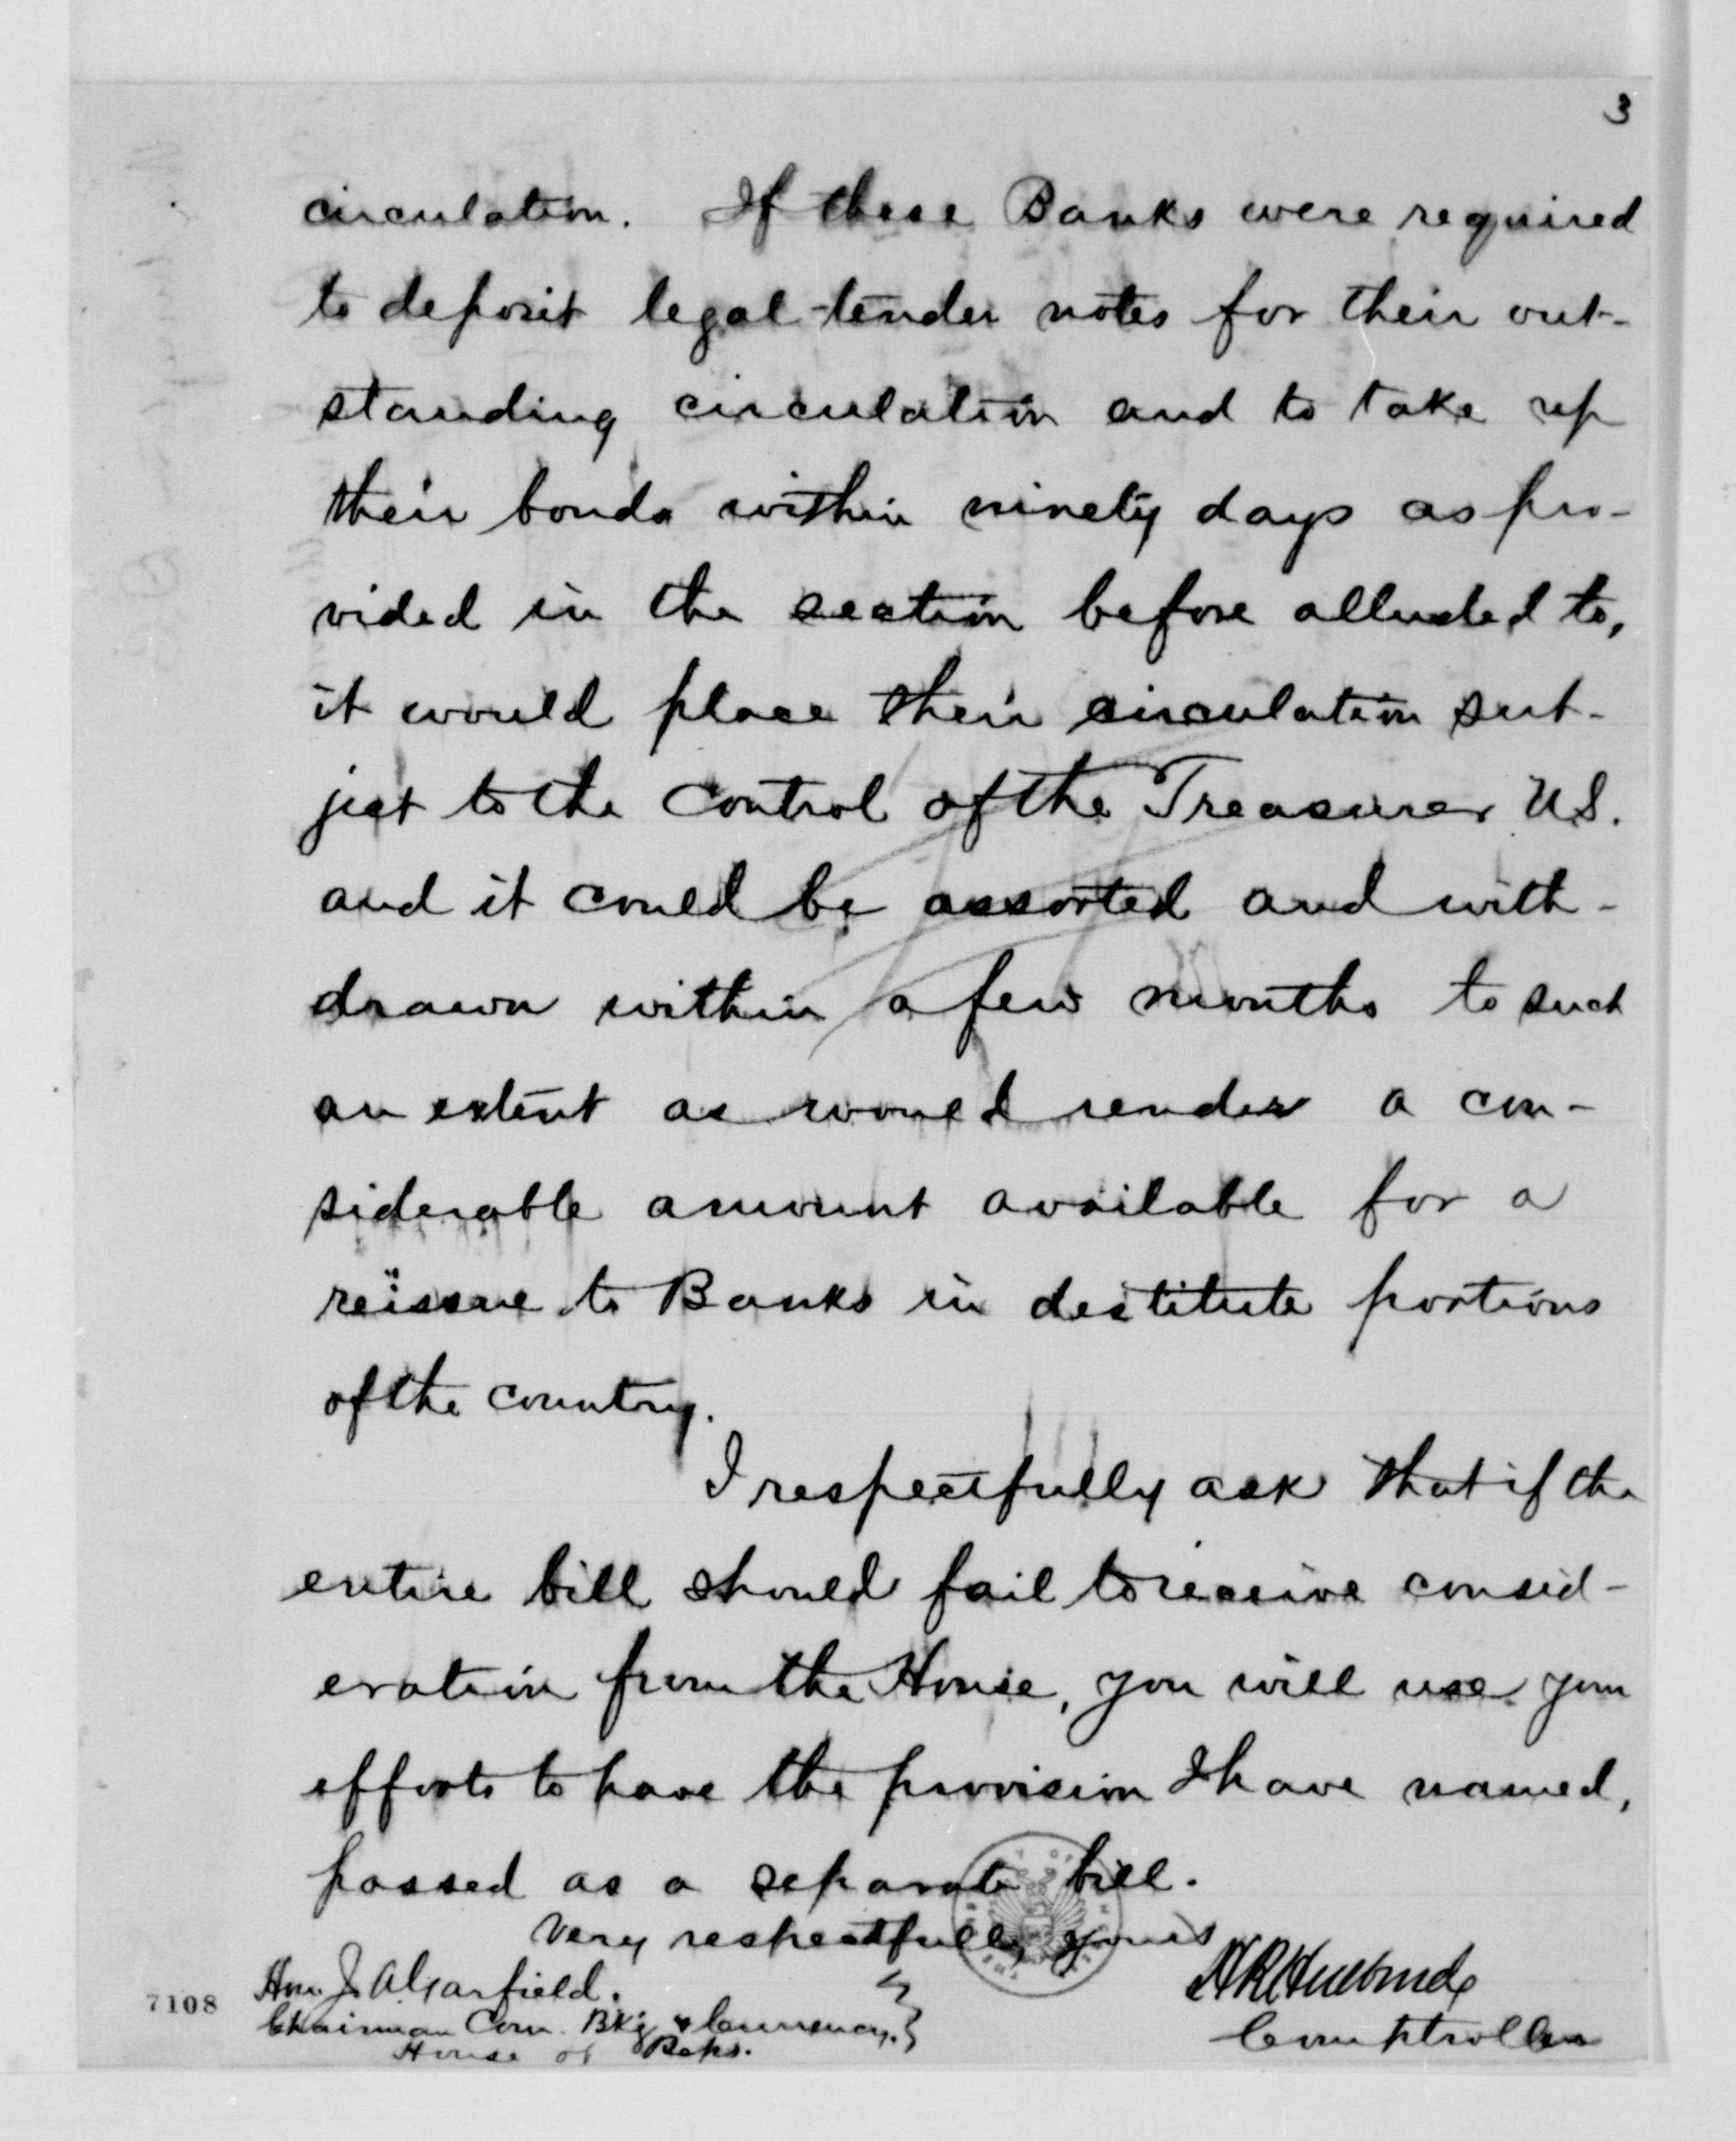 3
circulation. If these Banks were required
to deposit legal-tender notes for their out-
standing circulation and to take up
their bonds within ninety days as pro-
vided in the section before alluded to,
it would place their circulation sub-
ject to the control of the Treasurer U.S.
and it could be assorted and with-
drawn within a few months to such
an extent as would render a con-
siderable amount available for a
reïssue to Banks in destitute portions
of the country.
I respectfully ask that if the
entire bill should fail to receive consid-
eration from the House, you will use your
efforts to have the provision I have named,
passed as a separate bill.
Very respectfully yours
H R Hulburd
Comptroller
Hon. J. A. Garfield.
Chairman Com. Bkg & Currency.
House of Reps.
7108